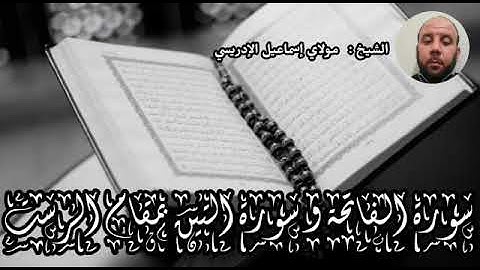 الشيخ : مولاي إسماعيل الإدريسي
سورة الفاتحة و سورة التين بمقام الرست